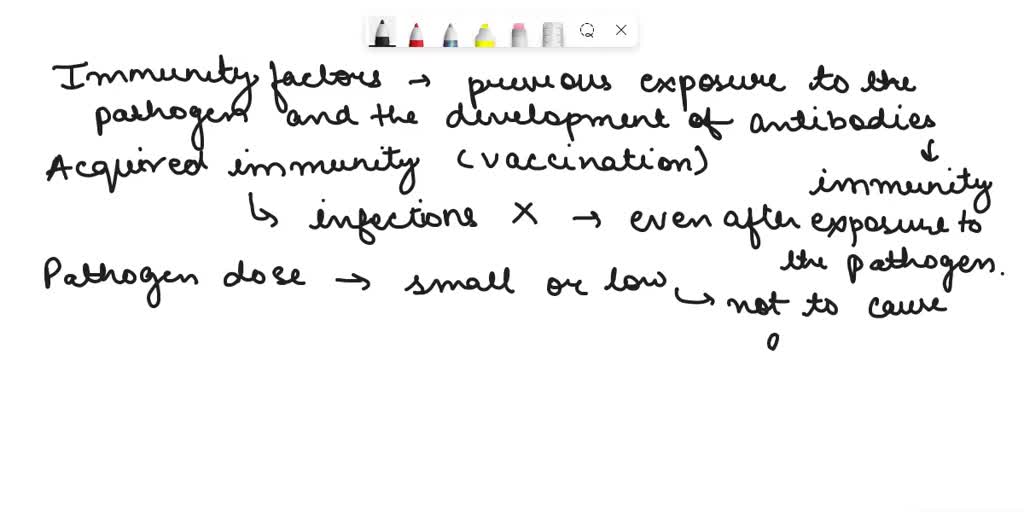 Immunity factors → previous exposure to the
pathogen and the development of antibodies
↓
Acquired immunity (vaccination)
immunity
↳ infections X → even after exposure to
the pathogen.
Pathogen dose → small or low
↳ not to cause